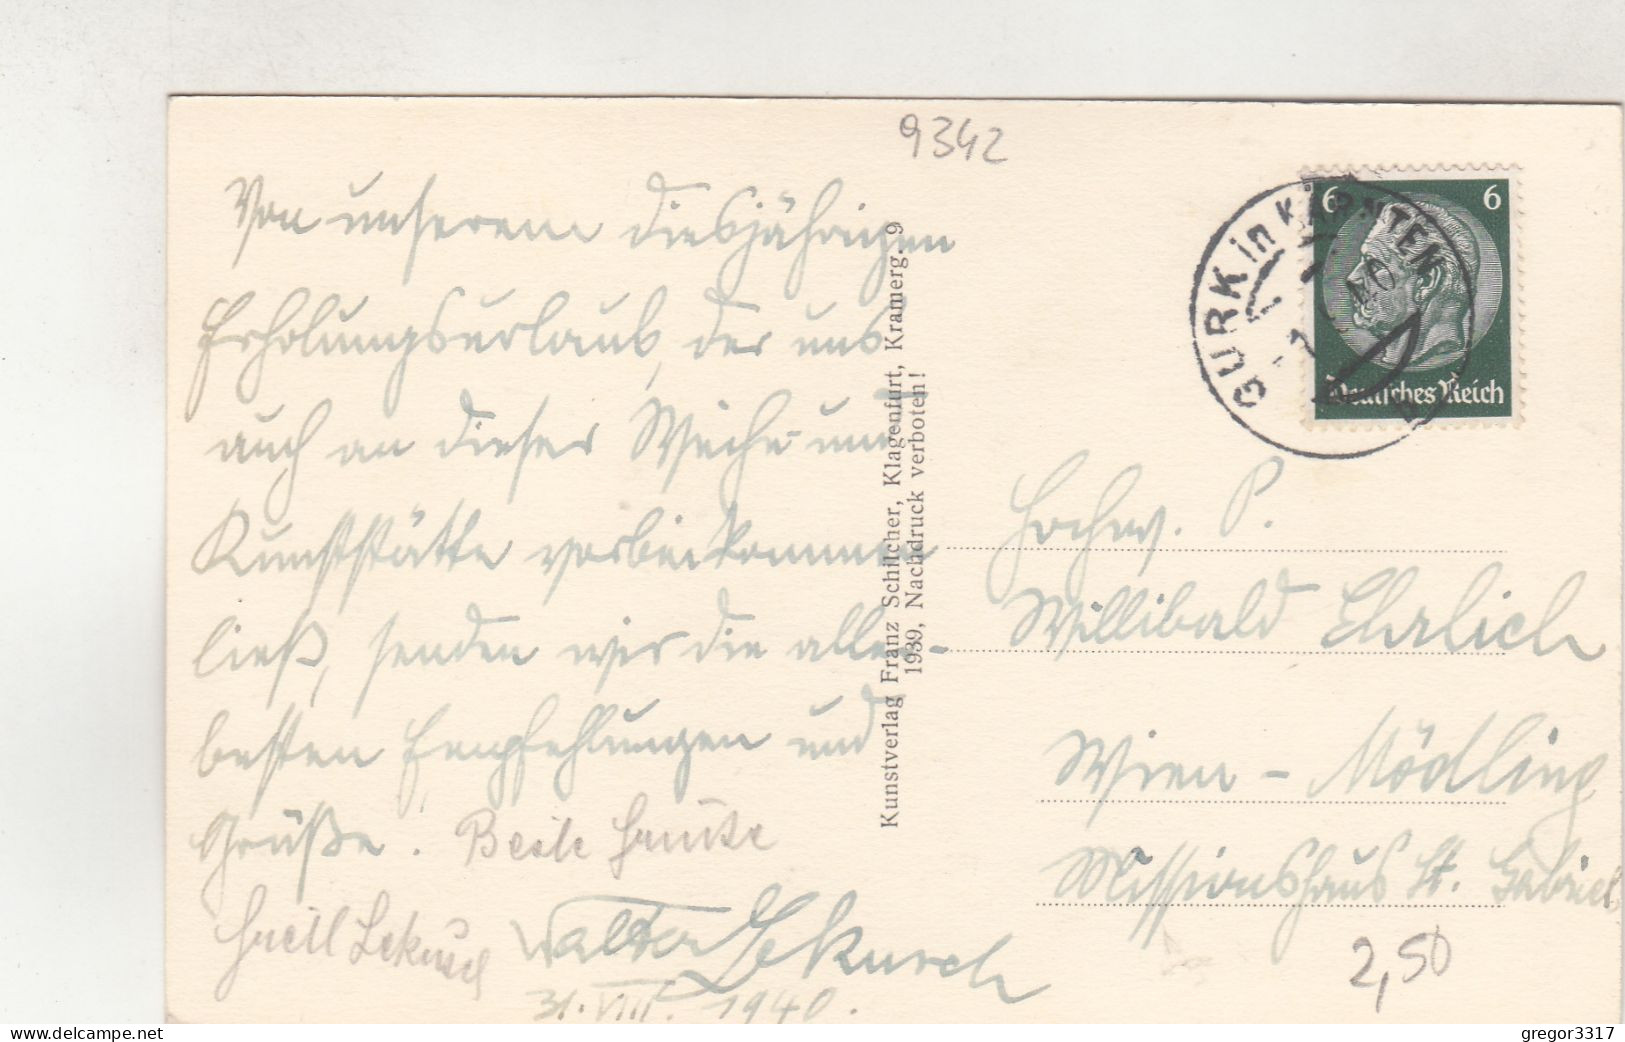 9342
Von unserem diesjährigen
Erholungsurlaub, der uns
auch an dieser Weihe- und
Kunststätte vorbeikommen
ließ, senden wir die aller-
besten Empfehlungen und
Grüße! Beste Grüße
Walter
31. VIII. 1940.
Kunstverlag Franz Schilcher, Klagenfurt, Kramerg. 9
1939, Nachdruck verboten!
GURK in KÄRNTEN
6 6
Deutsches Reich
Hochw. P.
Willibald Ehrlich
Wien - Mödling
Missionshaus St. Gabriel
2,50
delcampe.net
gregor3317